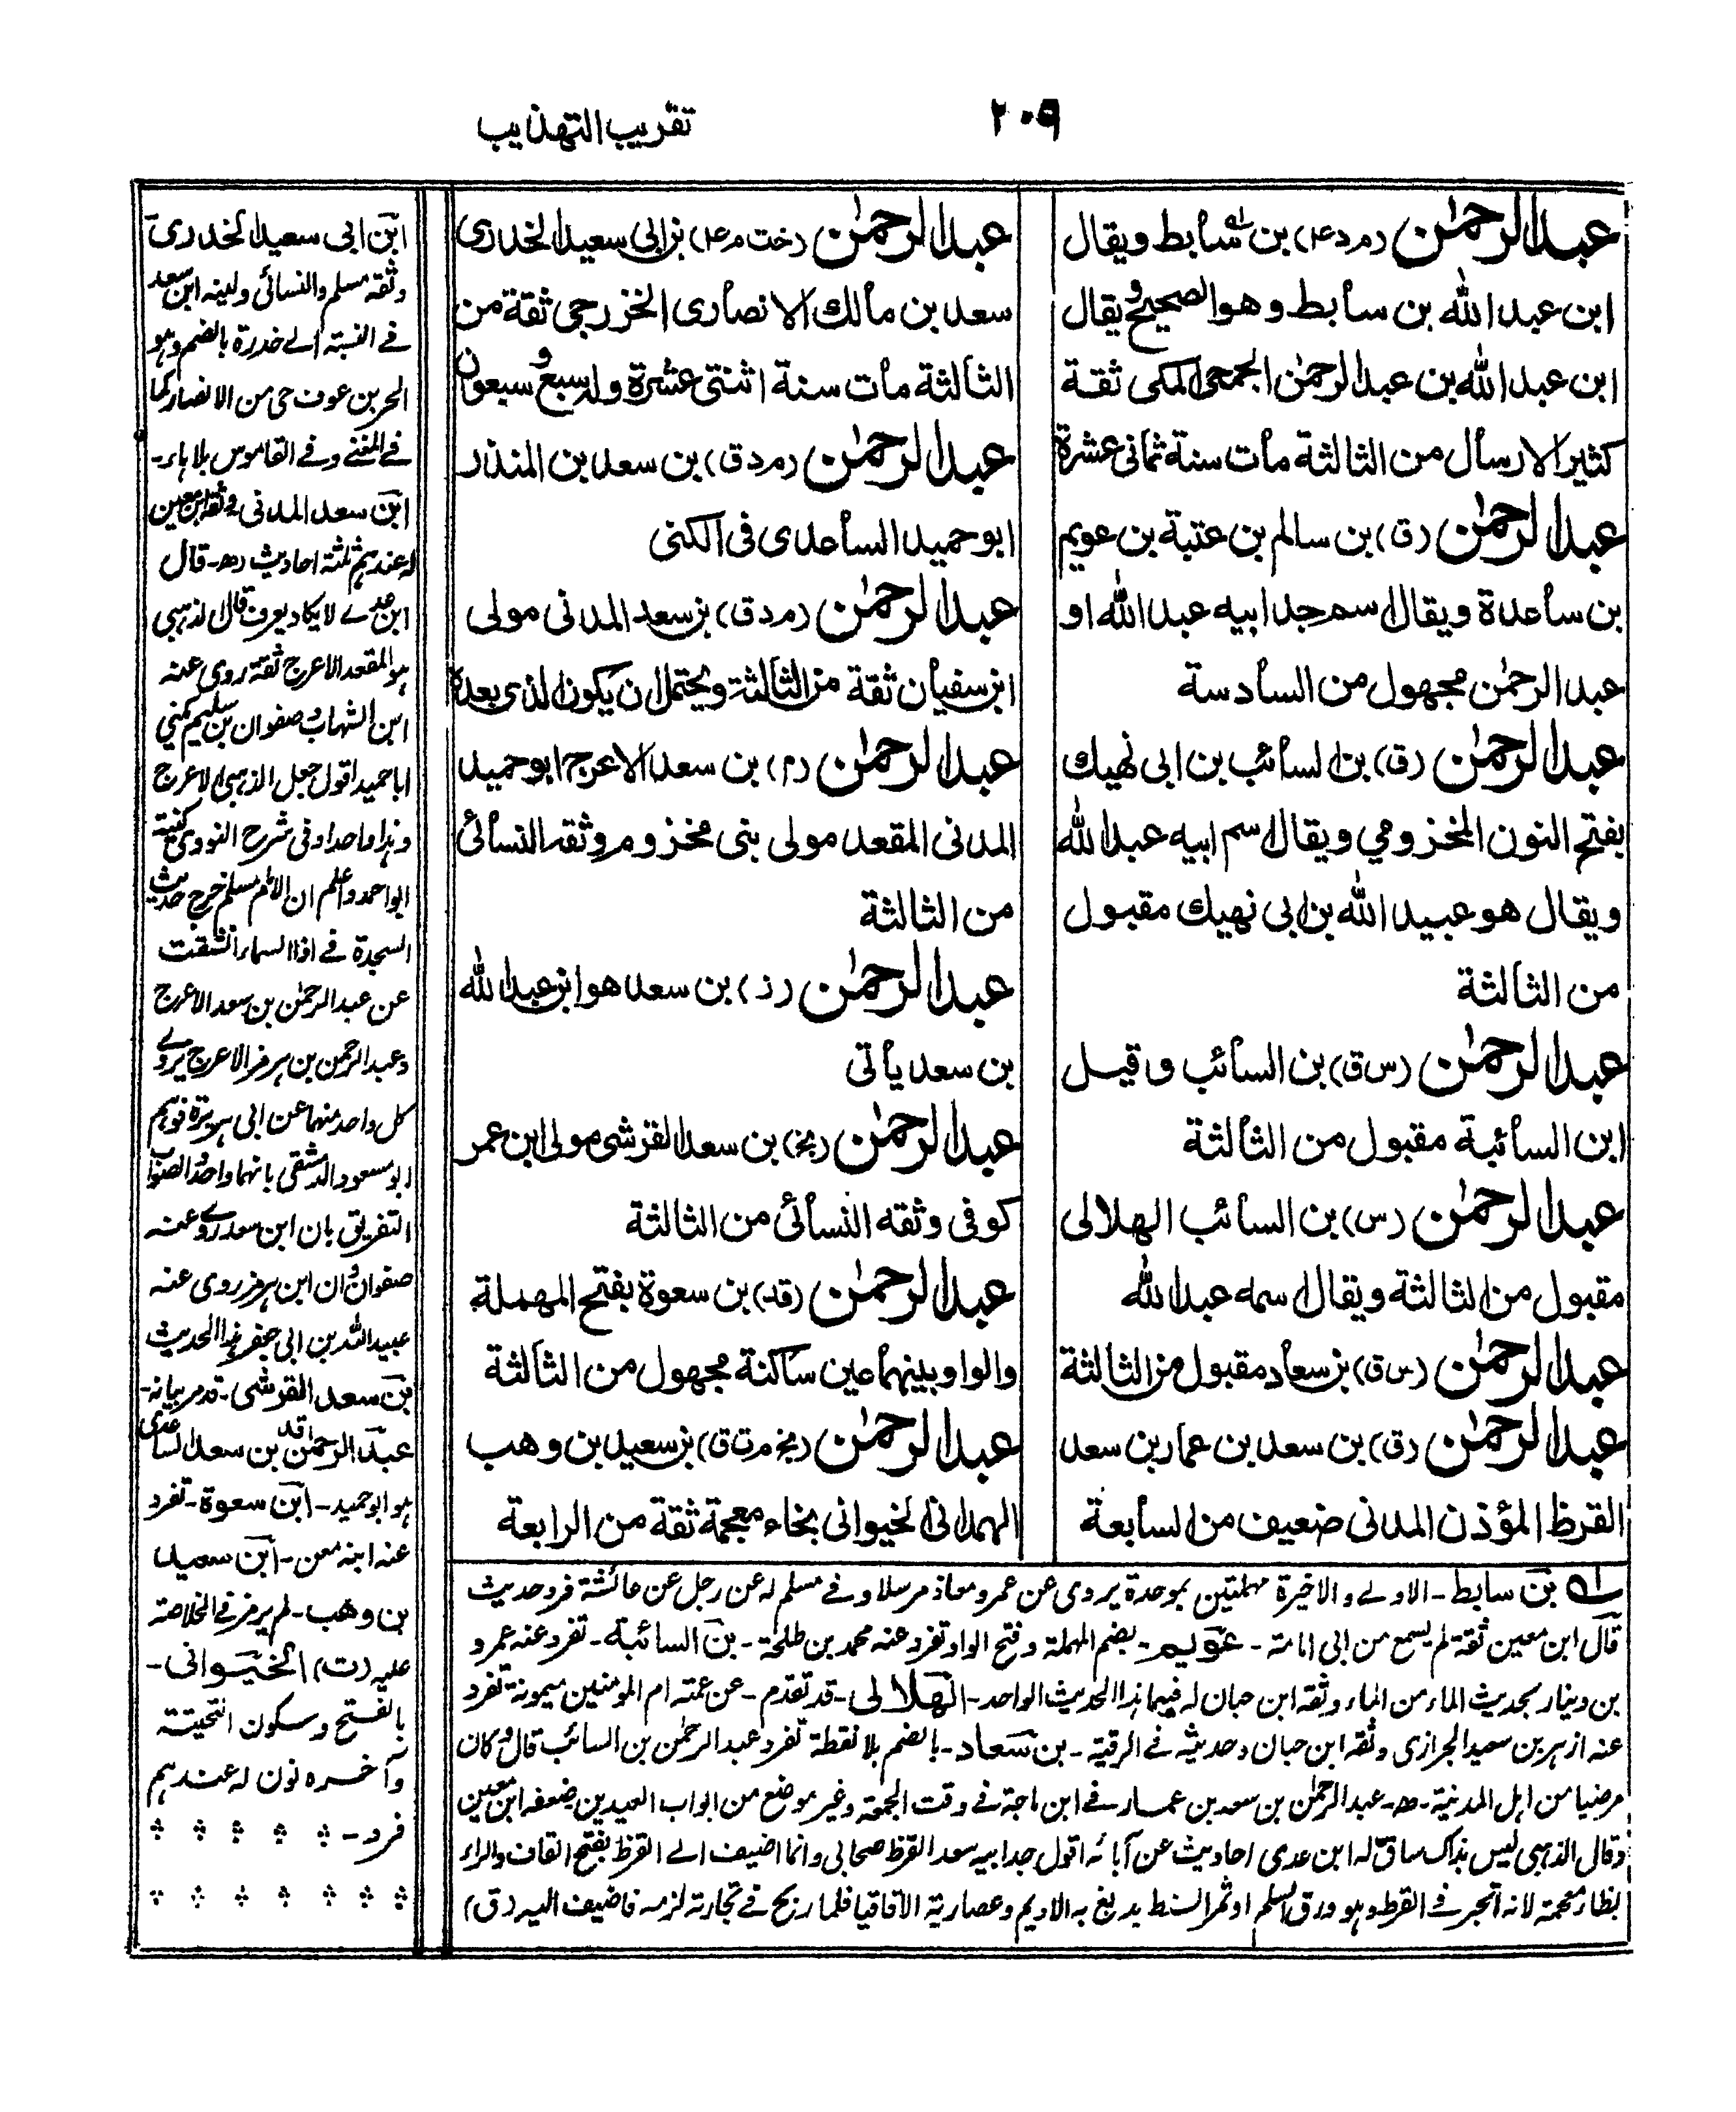 ۲۰۹
تقريب التهذيب
عبد الرحمٰن (م د ۴) بن سابط ويقال
ابن عبد الله بن سابط وهو الصحيح ويقال
ابن عبد الله بن عبد الرحمٰن الجمحى المكى ثقة
كثير الارسال من الثالثة مات سنة ثمانى عشرة
عبد الرحمٰن (ق) بن سالم بن عتبة بن عويم
بن ساعدة ويقال اسم جد ابيه عبد الله او
عبد الرحمٰن مجهول من السادسة
عبد الرحمٰن (ق) بن السائب بن ابى نهيك
بفتح النون المخزومي ويقال اسم ابيه عبد الله
ويقال هو عبيد الله بن ابى نهيك مقبول
من الثالثة
عبد الرحمٰن (س ق) بن السائب وقيل
ابن السائبة مقبول من الثالثة
عبد الرحمٰن (س) بن السائب الهلالى
مقبول من الثالثة ويقال اسمه عبد الله
عبد الرحمٰن (س ق) بن سعاد مقبول من الثالثة
عبد الرحمٰن (ق) بن سعد بن عمار بن سعد
القرظ المؤذن المدنى ضعيف من السابعة
عبد الرحمٰن (خت م ۴) بن ابى سعيد الخدرى
سعد بن مالك الانصارى الخزرجى ثقة من
الثالثة مات سنة اثنتى عشرة وله سبع و سبعون
عبد الرحمٰن (م د ق) بن سعد بن المنذر
ابو حميد الساعدى فى الكنى
عبد الرحمٰن (م د ق) بن سعد المدنى مولى
ابن سفيان ثقة من الثالثة ويحتمل ان يكون الذى بعده
عبد الرحمٰن (م) بن سعد الاعرج ابو حميد
المدنى المقعد مولى بنى مخزوم وثقه النسائى
من الثالثة
عبد الرحمٰن (ز) بن سعد هو ابن عبد الله
بن سعد يأتى
عبد الرحمٰن (بخ) بن سعد القرشى مولى ابن عمر
كوفى وثقه النسائى من الثالثة
عبد الرحمٰن (قد) بن سعوة بفتح المهملة
والواو بينهما عين ساكنة مجهول من الثالثة
عبد الرحمٰن (بخ م ت ق) بن سعيد بن وهب
الهمدانى الخيوانى بخاء معجمة ثقة من الرابعة
ابن ابى سعيد الخدرى
وثقه مسلم والنسائى ولينه ابن سعد
فے النسبة الے خدرة بالضم وهو
الحر بن عوف حى من الانصار كما
فے المغنے وفے القاموس بلا هاء -
ابن سعد المدنى وثقه ابن معين
له عندهم ثلثة احاديث ۱۲ھ - قال
ابن عدے لا يكاد يعرف قال الذهبى
هو المقعد الاعرج ثقة روى عنه
ابن الشهاب و صفوان بن سليم كنى
ابا حميد اقول جعل الذهبى الاعرج
وهذا واحدا وفى شرح النووى كنيته
ابو احمد واعلم ان الامام مسلم خرج حديث
السجدة فے اذا السماء انشقت
عن عبد الرحمٰن بن سعد الاعرج
وعبد الرحمن بن هرمز الاعرج يروے
كل واحد منهما عن ابى هريرة فوهم
ابو مسعود الدمشقى بانهما واحد والصواب
التفريق بان ابن سعد روے عنه
صفوان و ان ابن هرمز روى عنه
عبيد الله بن ابى جعفر هذا الحديث
بن سعد القرشى - قد مر بيانه -
عبد الرحمن بن سعد الساعدى
هو ابو حميد - ابن سعوة - تفرد
عنه ابنه معن - ابن سعيد
بن وهب - لم يرمز فے الخلاصة
عليه (ت) الخيوانى -
بالفتح و سكون التحيتة
وآخره نون له عندهم
فرد -
بن سابط - الاولے والاخيرة مهملتين بموحدة يروى عن عمر ومعاذ مرسلا وفے مسلم له عن رجل عن عائشة فرد حديث
قال ابن معين ثقة لم يسمع من ابى امامة - عويم - بضم المهملة وفتح الواو تفرد عنه محمد بن طلحة - بن السائبة - تفرد عنه عمرو
بن دينار بحديث الماء من الماء وثقه ابن حبان له فيهما هذا الحديث الواحد - الهلالى - قد تقدم - عن عمته ام المومنين ميمونة تفرد
عنه ازهر بن سعيد الحرازى وثقه ابن حبان وحديثه فے الرقية - بن سعاد - بالضم بلا نقطة تفرد عبد الرحمٰن بن السائب قال وكان
مرضيا من اهل المدينة - ۱۲ھ - عبد الرحمٰن بن سعد بن عمار فے ابن ماجة فے وقت الجمعة وغير موضع من ابواب العيدين ضعفه ابن معين
وقال الذهبى ليس بذاك ساق له ابن عدى احاديث عن آبائه اقول جد ابيه سعد القرظ صحابى وانما اضيف الے القرظ بفتح القاف والراء
بظاء معجمة لانه اتجر فے القرظ وهو ورق السلم او ثمر السنط يدبغ به الاديم وعصارته الاقاقيا فلما ربح فے تجارته لزمه فاضيف اليه (ق)